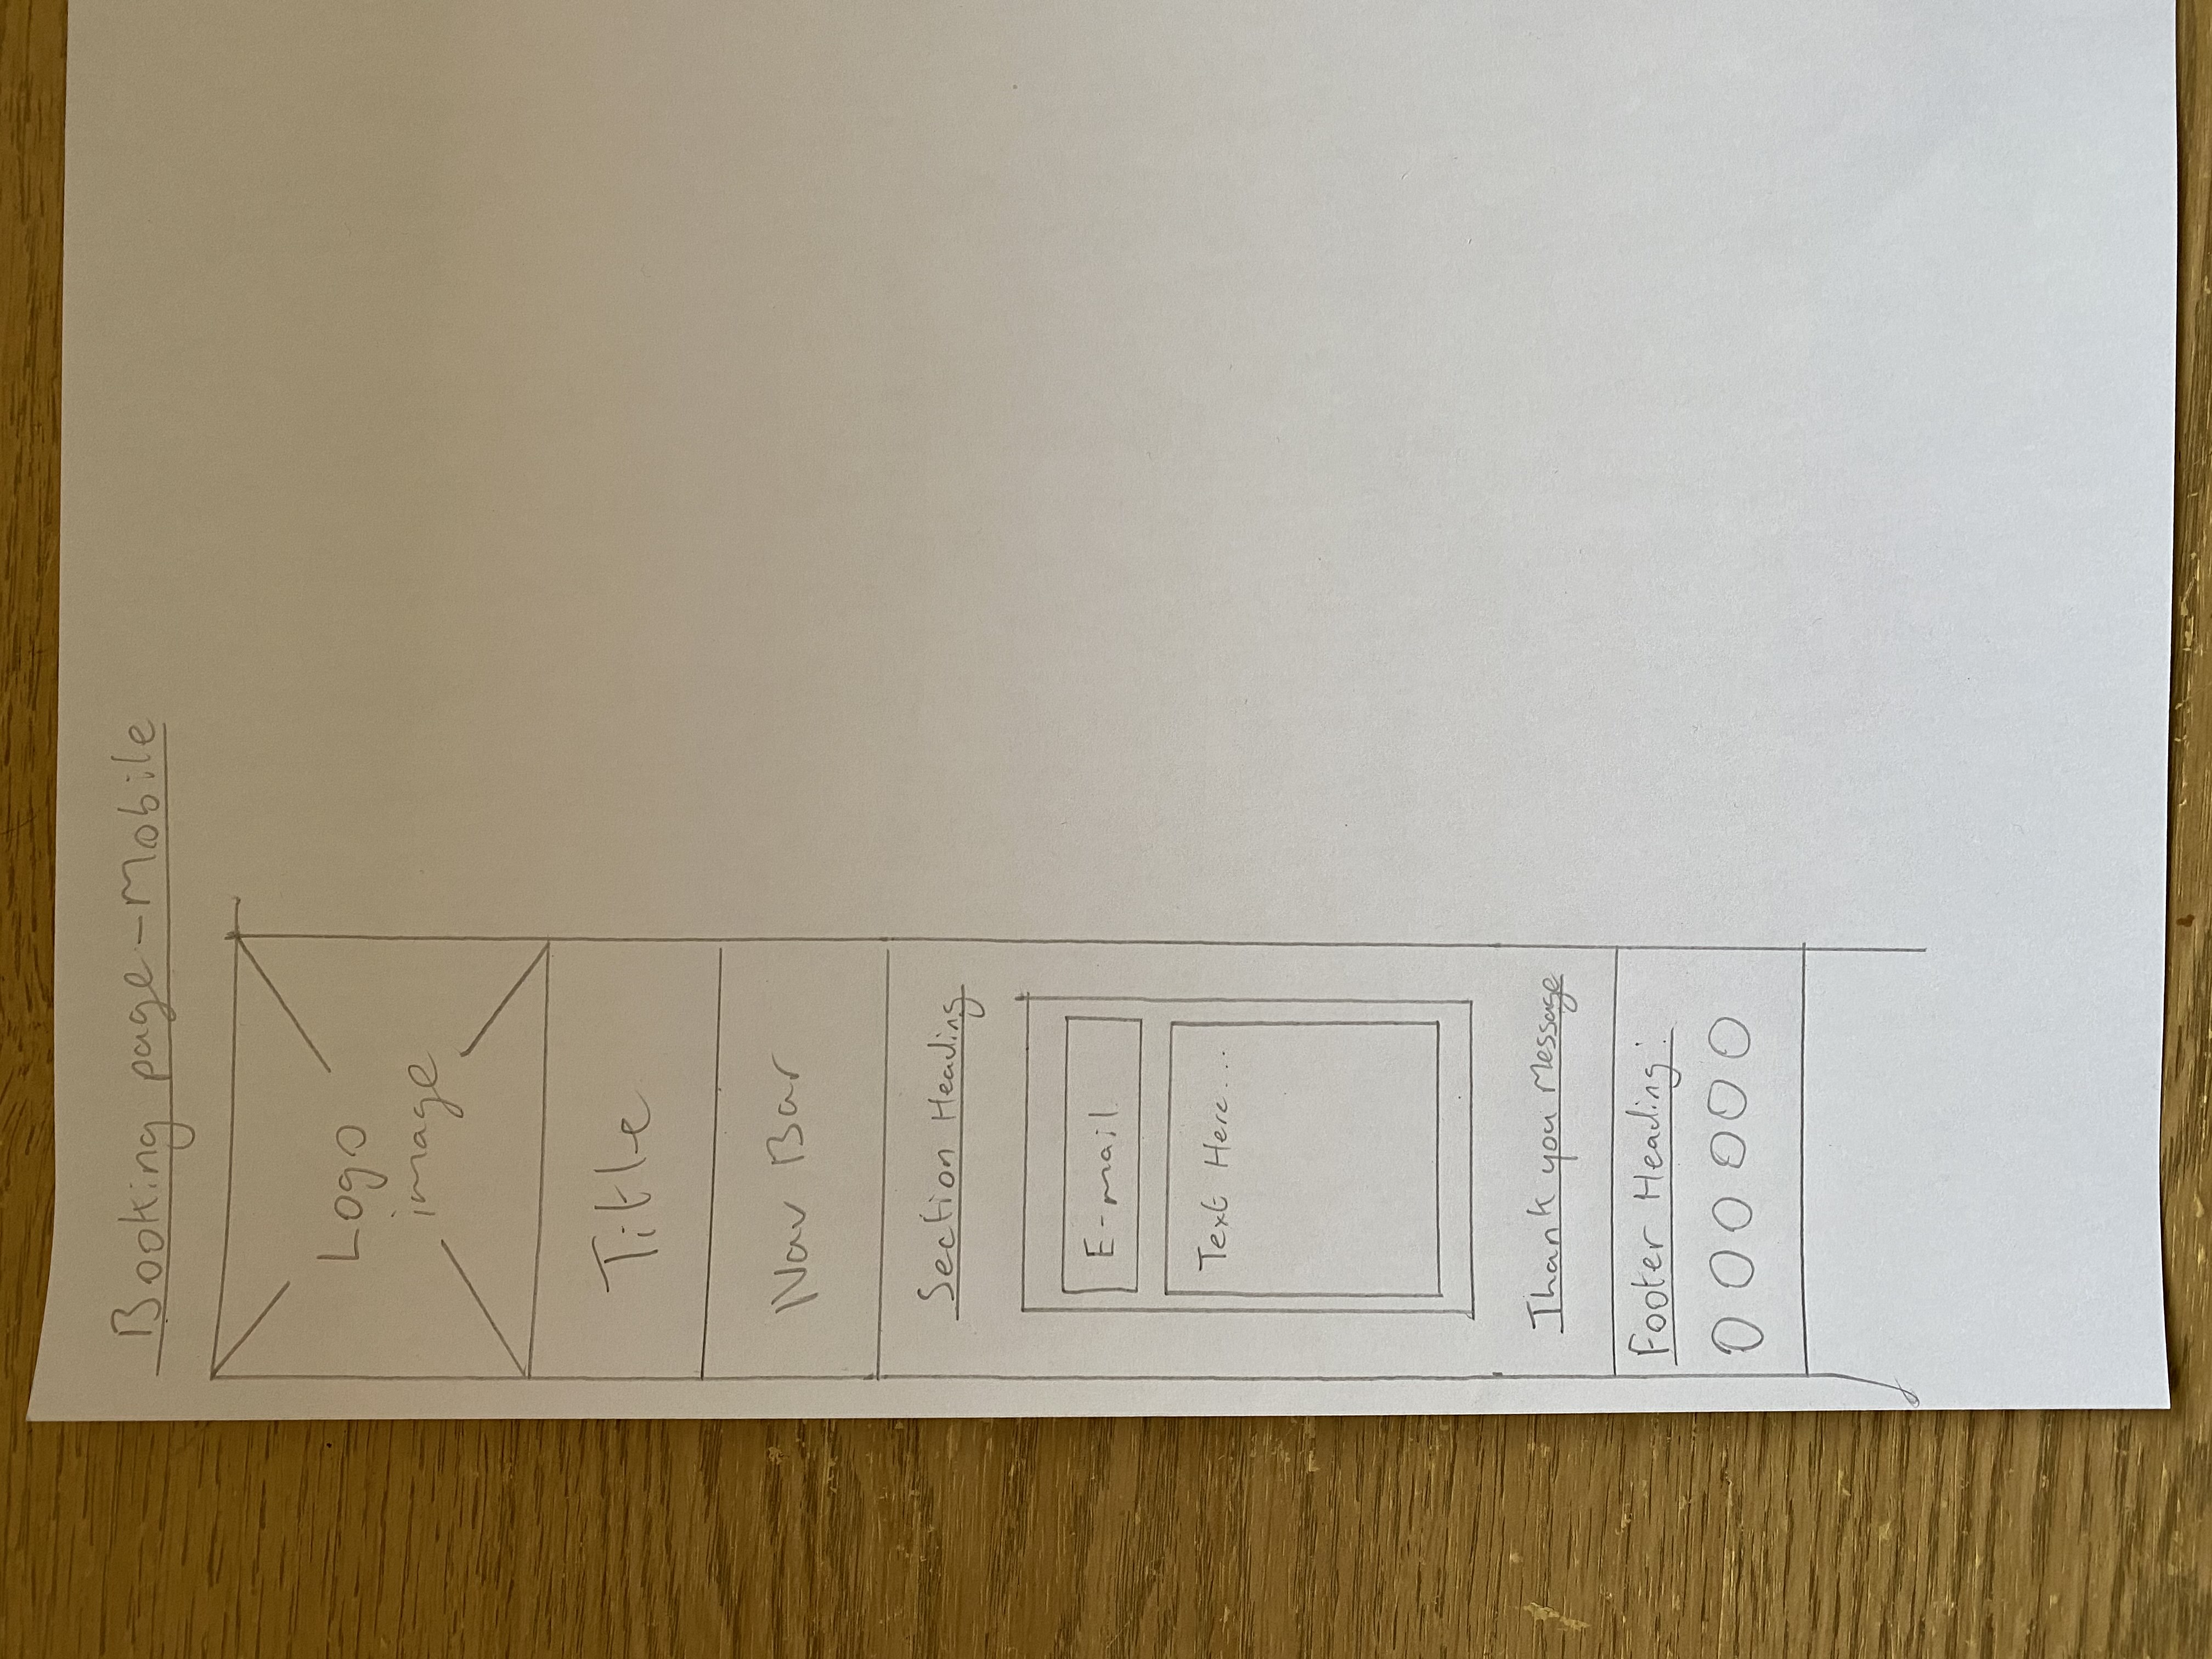 Booking page - Mobile
Logo
image
Title
Nav Bar
Section Heading
E-mail
Text Here...
Thank you Message
Footer Heading: